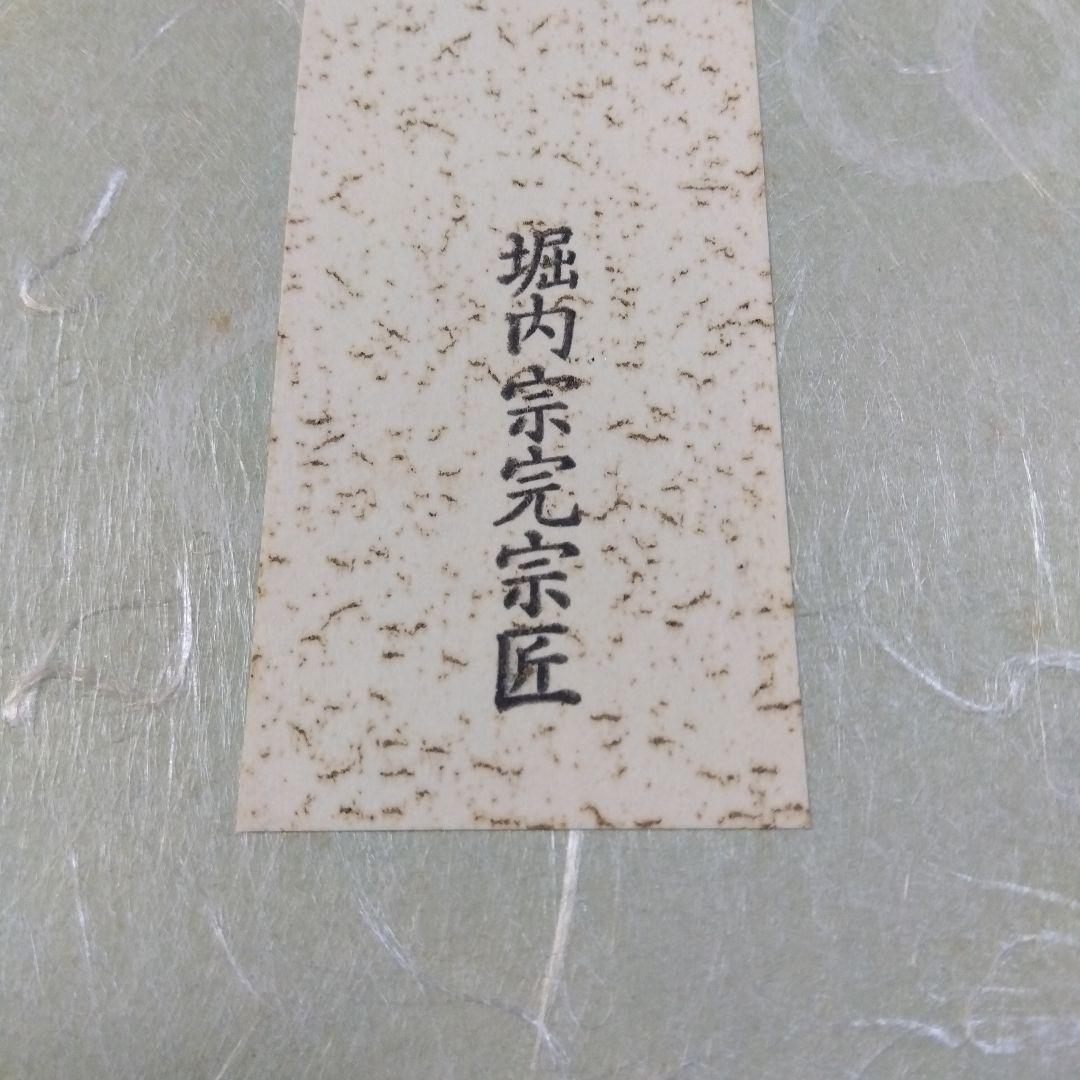 堀内宗完宗匠